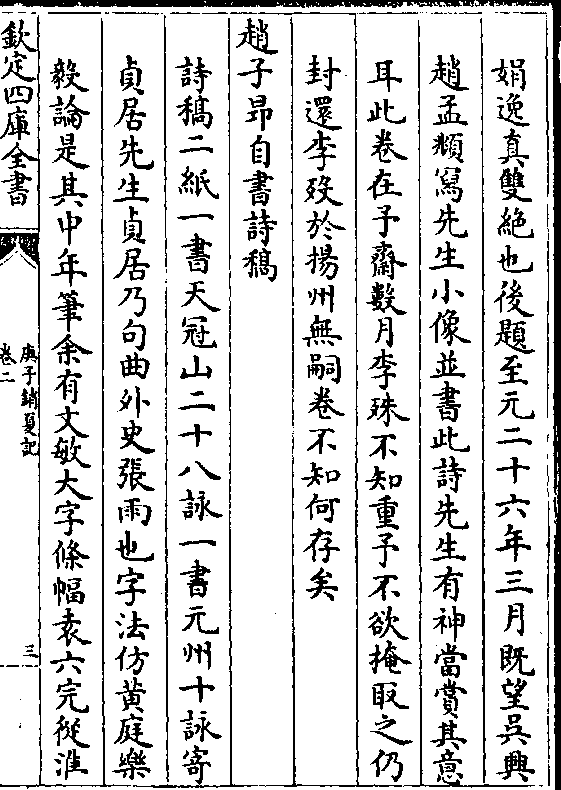 娟逸真雙絶也後題至元二十六年三月既望吳興
趙孟頫寫先生小像並書此詩先生有神當賞其意
耳此卷在予齋數月李殊不知重予不欲掩取之仍
封還李歿於揚州無嗣卷不知何存矣
趙子昂自書詩稿
詩稿二紙一書天冠山二十八詠一書元州十詠寄
貞居先生貞居乃句曲外史張雨也字法仿黄庭樂
毅論是其中年筆余有文敏大字條幅袁六完從淮
欽定四庫全書
庚子銷夏記
卷二
三